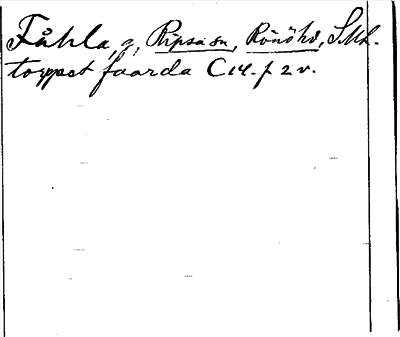 Fåhla, g, Ripsa sn, Rönöhd, SML.
torpet faarda C14. f 2 v.